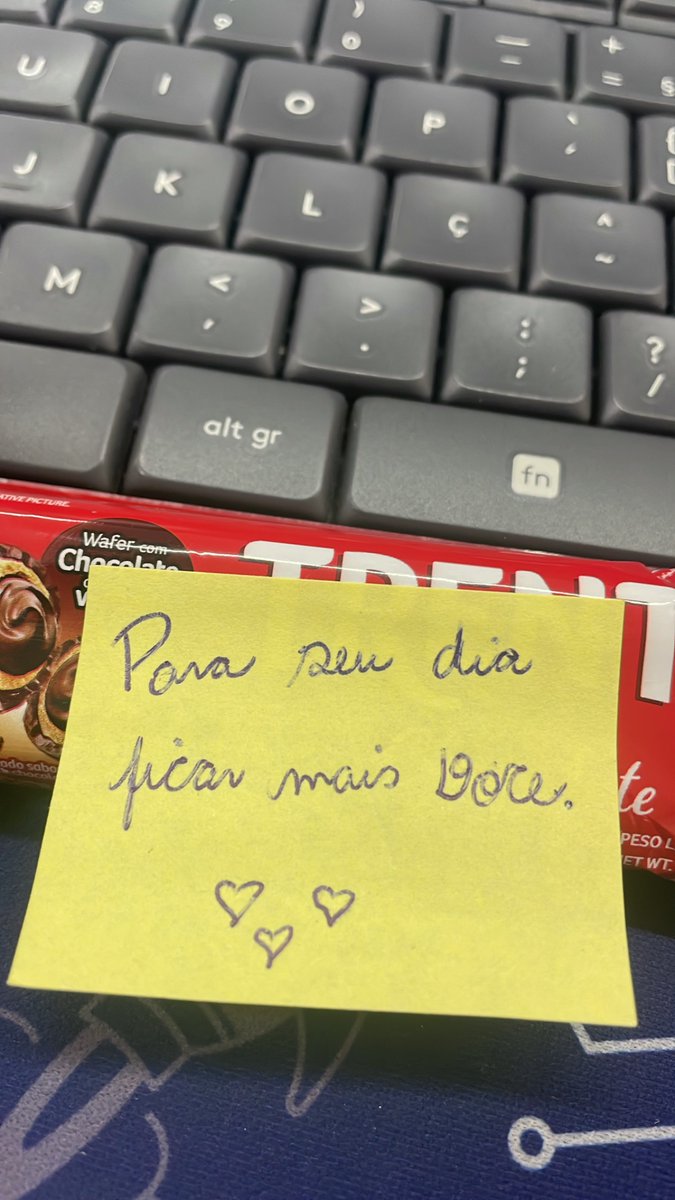 U I O P
J K L Ç ^ ~
M < , > . : ; ? /
alt gr fn
Wafer com
Chocolate
TRENT
Para seu dia
ficar mais Doce.
te
PESO L
ET WT.
ATIVE PICTURE.